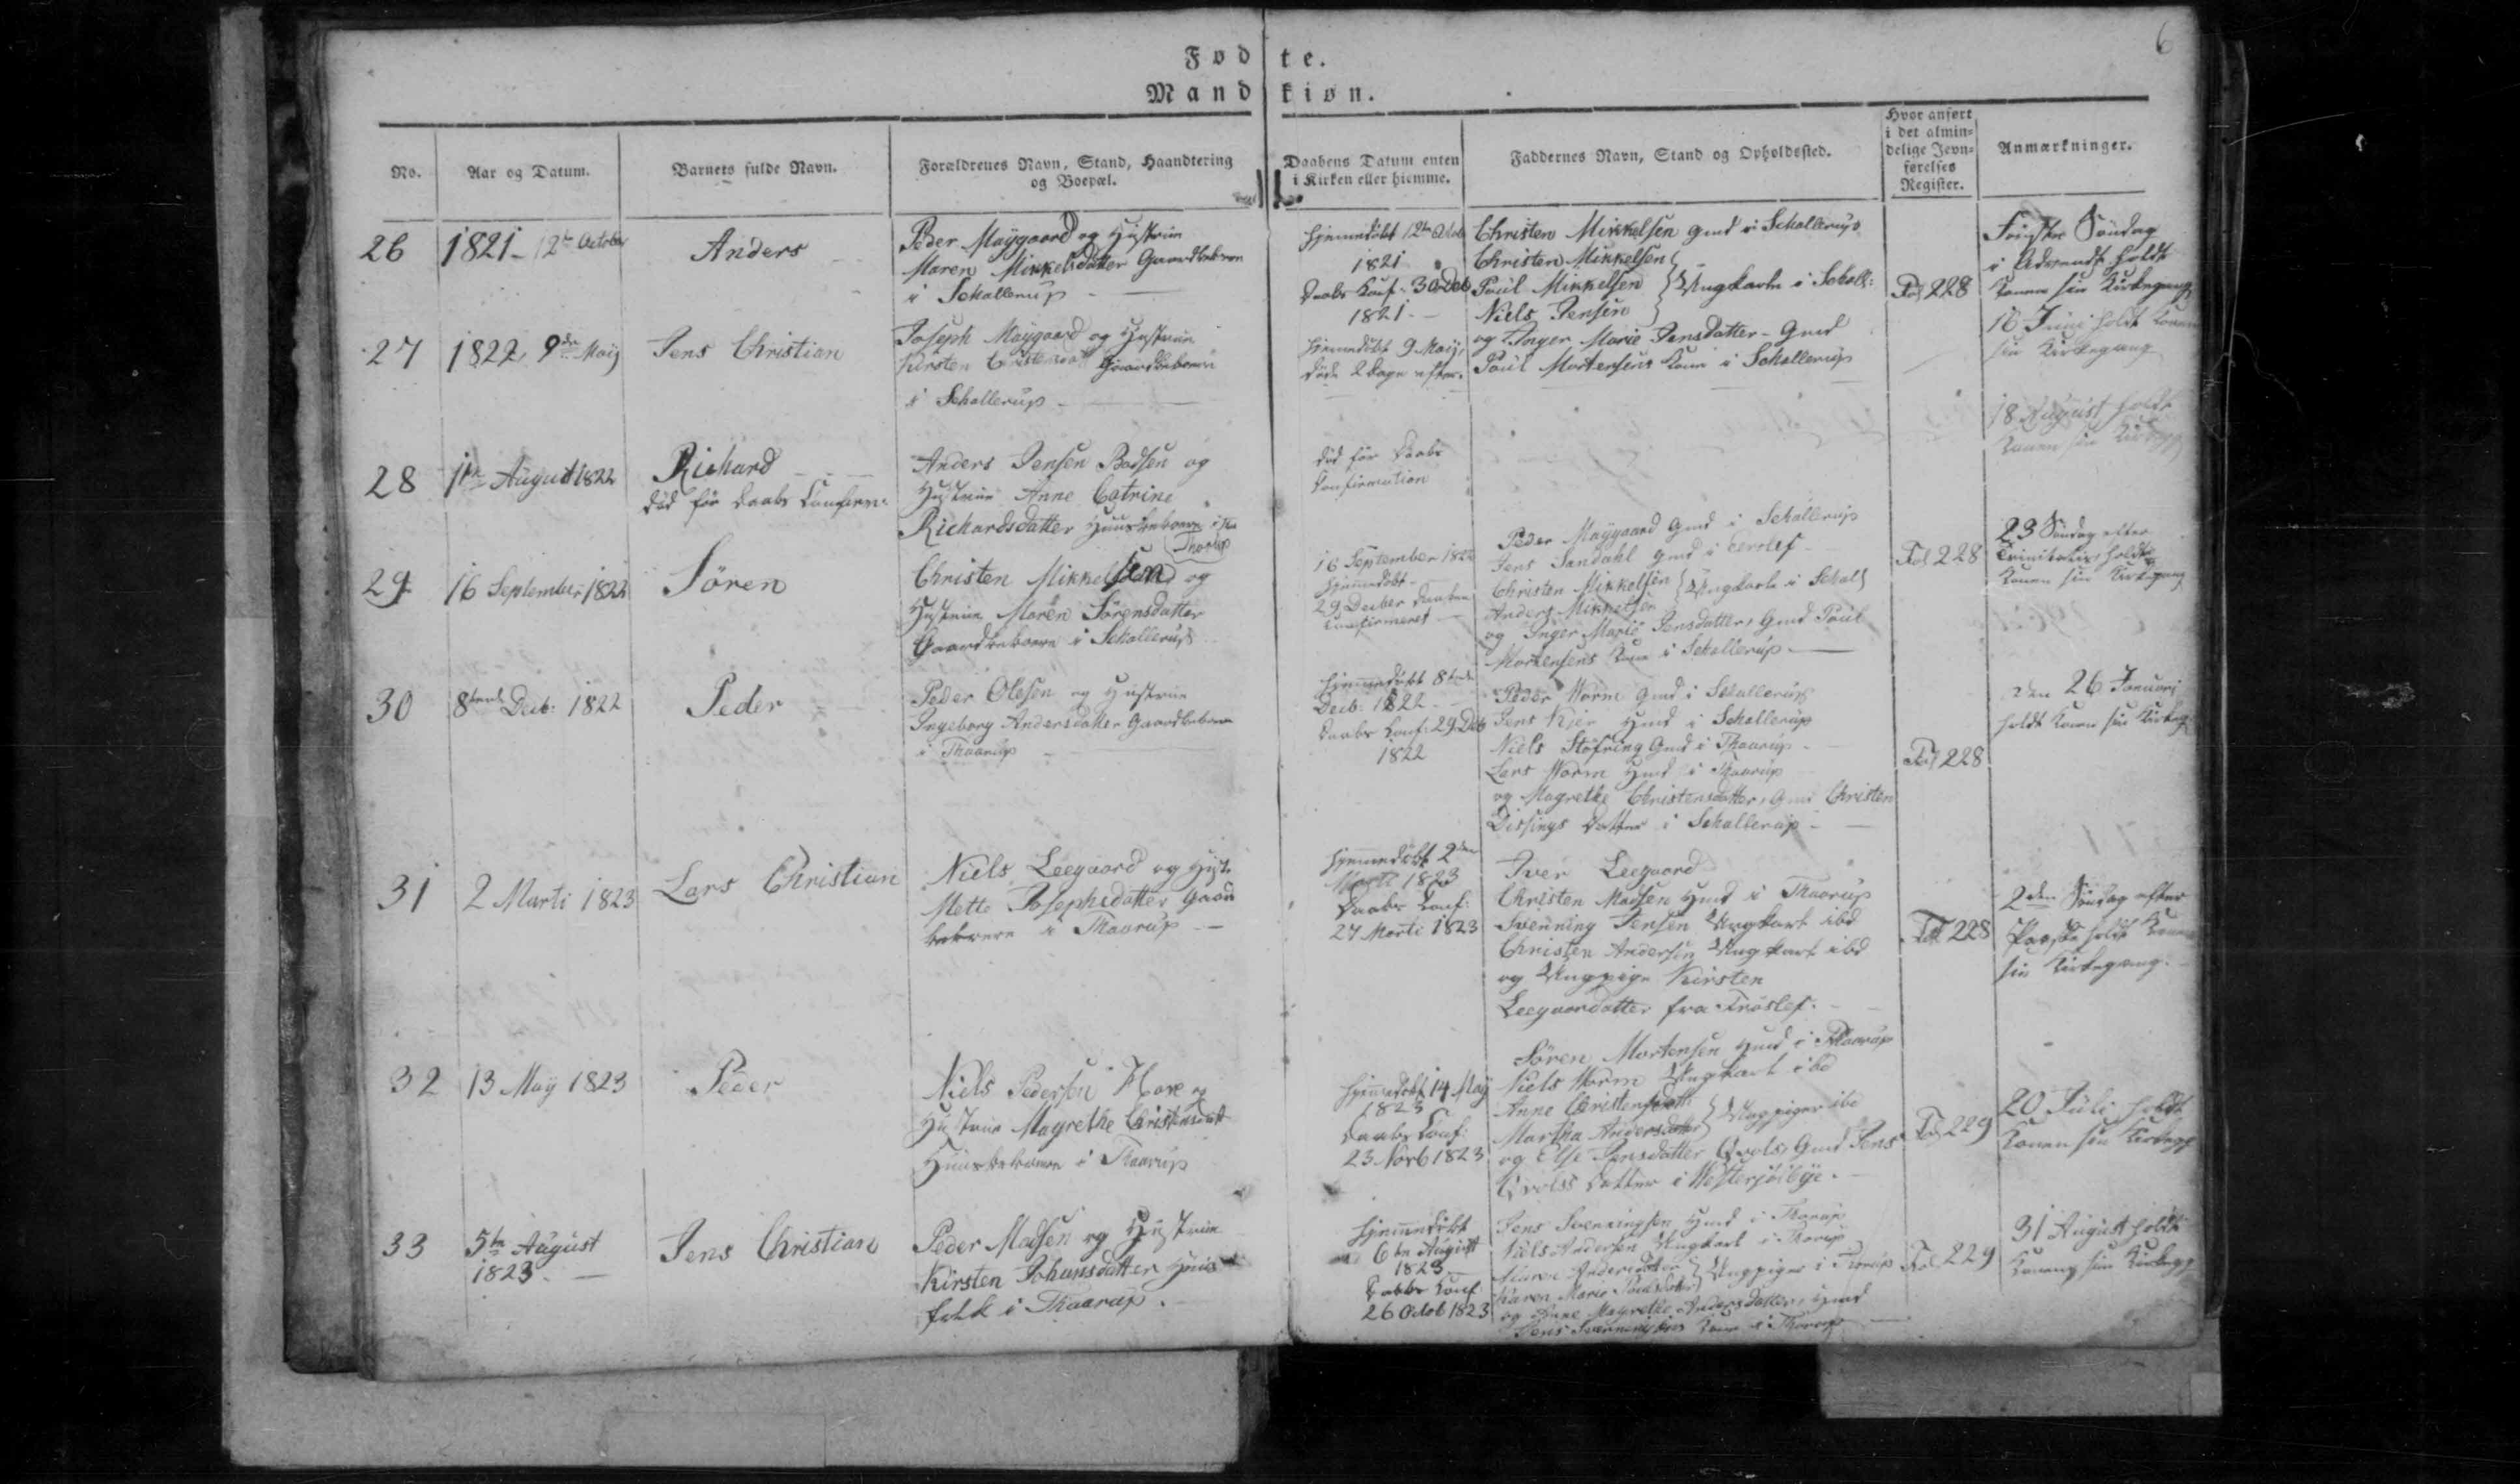 6
Fød te.
Mand kiøn.
No.
Aar og Datum.
Barnets fulde Navn.
Forældrenes Navn, Stand, Haandtering
og Boepæl.
Daabens Datum enten
i Kirken eller hiemme.
Faddernes Navn, Stand og Opholdssted.
Hvor anført
i det almin=
delige Jevn=
førelses
Register.
Anmærkninger.
26
1821 - 12te October
Anders
Peder Maÿgaard og Hustrue
Maren Mikkelsdatter Gaardbeboere
i Schallerup
hjemmedöbt 12te Octob
1821
Daabs Conf. 30 Dcb
1821
Christen Mikkelsen Gmd i Schallerup
Christen Mikkelsen
Poul Mikkelsen } Ungkarle i Schall:
Niels Jensen
og Inger Marie Jensdatter - Gmd
Poul Mortensens Kone i Schallerup
Fol 228
Söndag
i Advendt holdt
Konen sin Kirkegang
27
1822, 9de Maij
Jens Christian
Joseph Maÿgaard og Hustrue
Kirsten Christensdatt Gaardbeboere
i Schallerup
hjemmedöbt 9 Maij,
döde 2 Dage efter.
16 Junj holdt Konen
sin Kirkegang
28
1te August 1822
Richard
död för Daabs Confirm:
Anders Jensen Badsen og
Hustrue Anne Catrine
Richardsdatter Huusbeboere i
Thorup
död för Daabs
Confirmation
18 August holdt
Konen sin Kirkegg
29
16 September 1822
Sören
Christen Mikkelsen og
Hustrue Maren Sörensdatter
Gaardbeboere i Schallerup
16 September 1822
hjemmedöbt
29 Decber Daaben
Confirmeret
Peder Maygaard Gmd i Schallerup
Jens Sandahl Gmd i
Christen Mikkelsen } Ungkarle i Schall
Anders Mikkelsen
og Inger Marie Jensdatter, Gmd Poul
Mortensens Kone i Schallerup
Fol 228
23 Söndag efter
Trinitatis holdt
Konen sin Kirkegang
30
8tende Decb: 1822
Peder
Peder Olesen og Hustrue
Ingeborg Andersdatter Gaardbeboere
i Thaarup
hjemmedöbt 8tende
Decb: 1822
Daabs Conf: 29 Dcb
1822
Peder Worm Gmd i Schallerup
Jens Kjer Hmd i Schallerup
Niels Stöfring Gmd i Thaarup
Lars Worm Hmd i Thaarup
og Magrethe Christensdatter, Gmd Christen
Dissings Datter i Schallerup
Fol 228
Den 26 Januari
holdt Konen sin Kirkeg
31
2 Marti 1823
Lars Christian
Niels Leegaard og Hust:
Mette Josephsdatter Gaard
beboere i Thaarup
hjemmedöbt 2den
Marti 1823
Daabs Conf:
27 Marti 1823
Iver Leegaard
Christen Madsen Hmd i Thaarup
Svenning Jensen Ungkarl ibd
Christen Andersen Ungkarl ibd
og Ungpige Kirsten
Leegaardatter fra Tröslef.
Fol 228
2den Söndag efter
Paaske holdt Konen
sin Kirkegang.
32
13 Maij 1823
Peder
Niels Pedersen Hare og
Hustrue Magrethe Christensdatt
Huusbeboere i Thaarup
hjemmedöbt 14 Maij
1823
Daabs Conf:
23 Novb 1823
Sören Mortensen Hmd i Thaarup
Niels Worm Ungkarl ibd
Anne Christensdatt
Martha Andersdatter } Ungpiger ibd
og Else Jensdatter Qvols, Gmd Jens
Qvolss Datter i Westerjölbÿe.
Fol 229
20 Juli holdt
Konen sin Kirkegg
33
5te August
1823.
Jens Christian
Peder Madsen og Hustrue
Kirsten Johansdatter Huus
folk i Thaarup.
hjemmedöbt
6te August
1823
Daabs Conf
26 Octob 1823
Jens Svenningsen Hmd i Thorup
Niels Andersen Ungkarl i Thorup
Maren Andersdatter } Ungpiger i Thorup
Karen Marie Poulsdatter
og Anne Magrethe Andersdatter, Hmd
Jens Svenningsens Kone i Thorup
Fol 229
31 August holdt
Konen sin Kirkegg